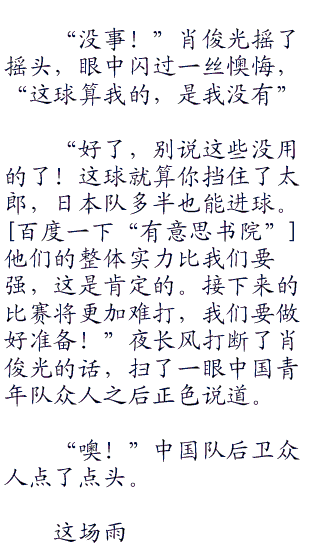 “没事！”肖俊光摇了
摇头，眼中闪过一丝懊悔，
“这球算我的，是我没有”
“好了，别说这些没用
的了！这球就算你挡住了太
郎，日本队多半也能进球。
[百度一下“有意思书院”]
他们的整体实力比我们要
强，这是肯定的。接下来的
比赛将更加难打，我们要做
好准备！”夜长风打断了肖
俊光的话，扫了一眼中国青
年队众人之后正色说道。
“噢！”中国队后卫众
人点了点头。
这场雨